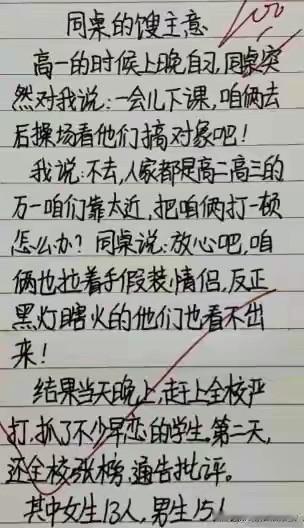 同桌的馊主意
100
高一的时候上晚自习,同桌突
然对我说:一会儿下课,咱俩去
后操场看他们搞对象吧!
我说:不去,人家都是高二高三的
万一咱们靠太近,把咱俩打一顿
怎么办?同桌说:放心吧,咱
俩也拉着手假装情侣,反正
黑灯瞎火的他们也看不出
来!
结果当天晚上,赶上全校严
打,抓了不少早恋的学生。第二天,
还全校张榜,通告批评。
其中女生13人,男生15!